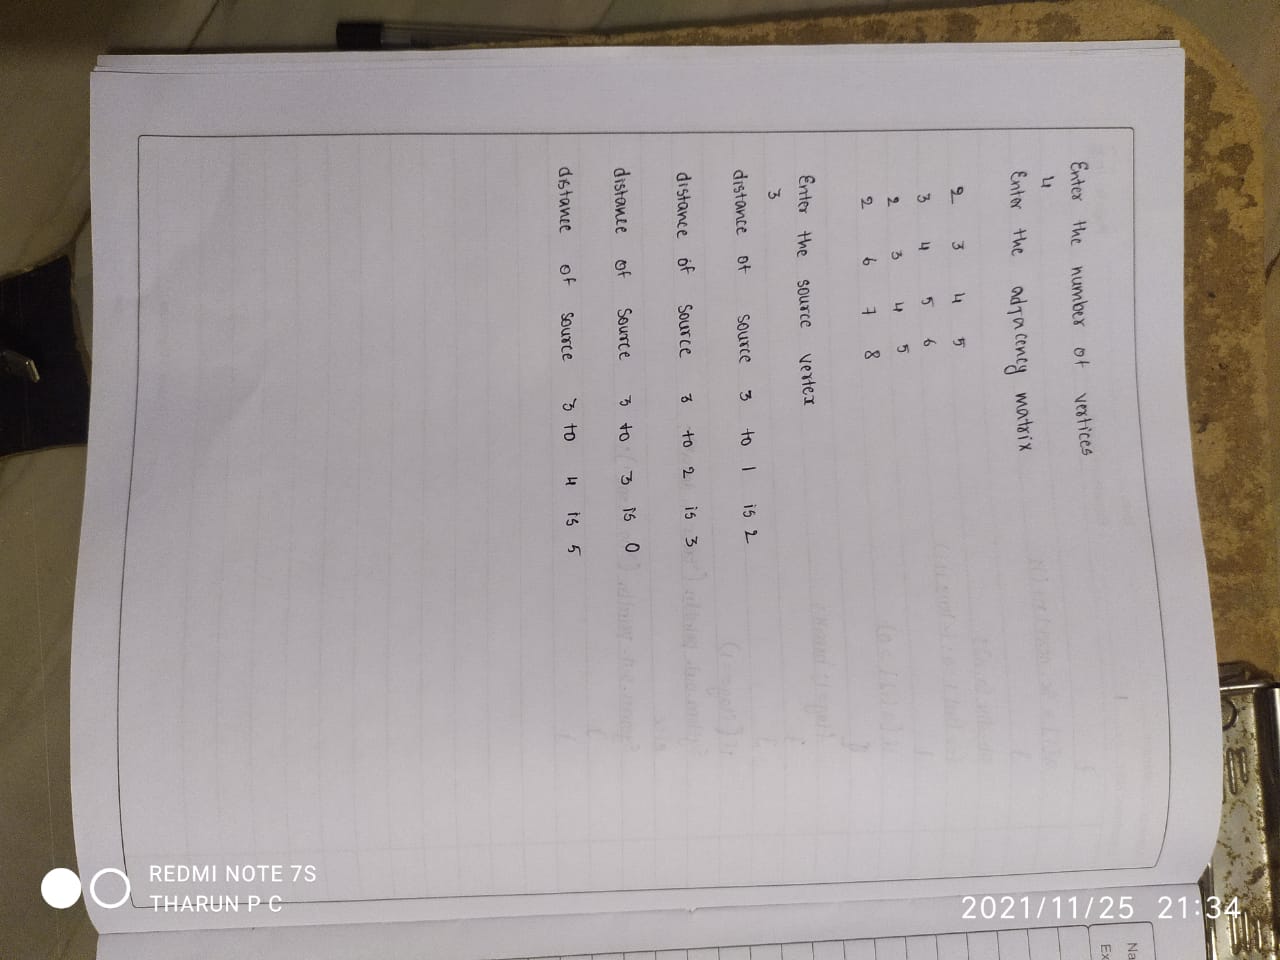 Enter the number of vertices
4
Enter the adjacency matrix
2 3 4 5
3 4 5 6
2 3 4 5
2 6 7 8
Enter the source vertex
3
distance of source 3 to 1 is 2
distance of source 3 to 2 is 3
distance of source 3 to 3 is 0
distance of source 3 to 4 is 5
Na
Ex
2021/11/25 21:34
REDMI NOTE 7S
THARUN P C